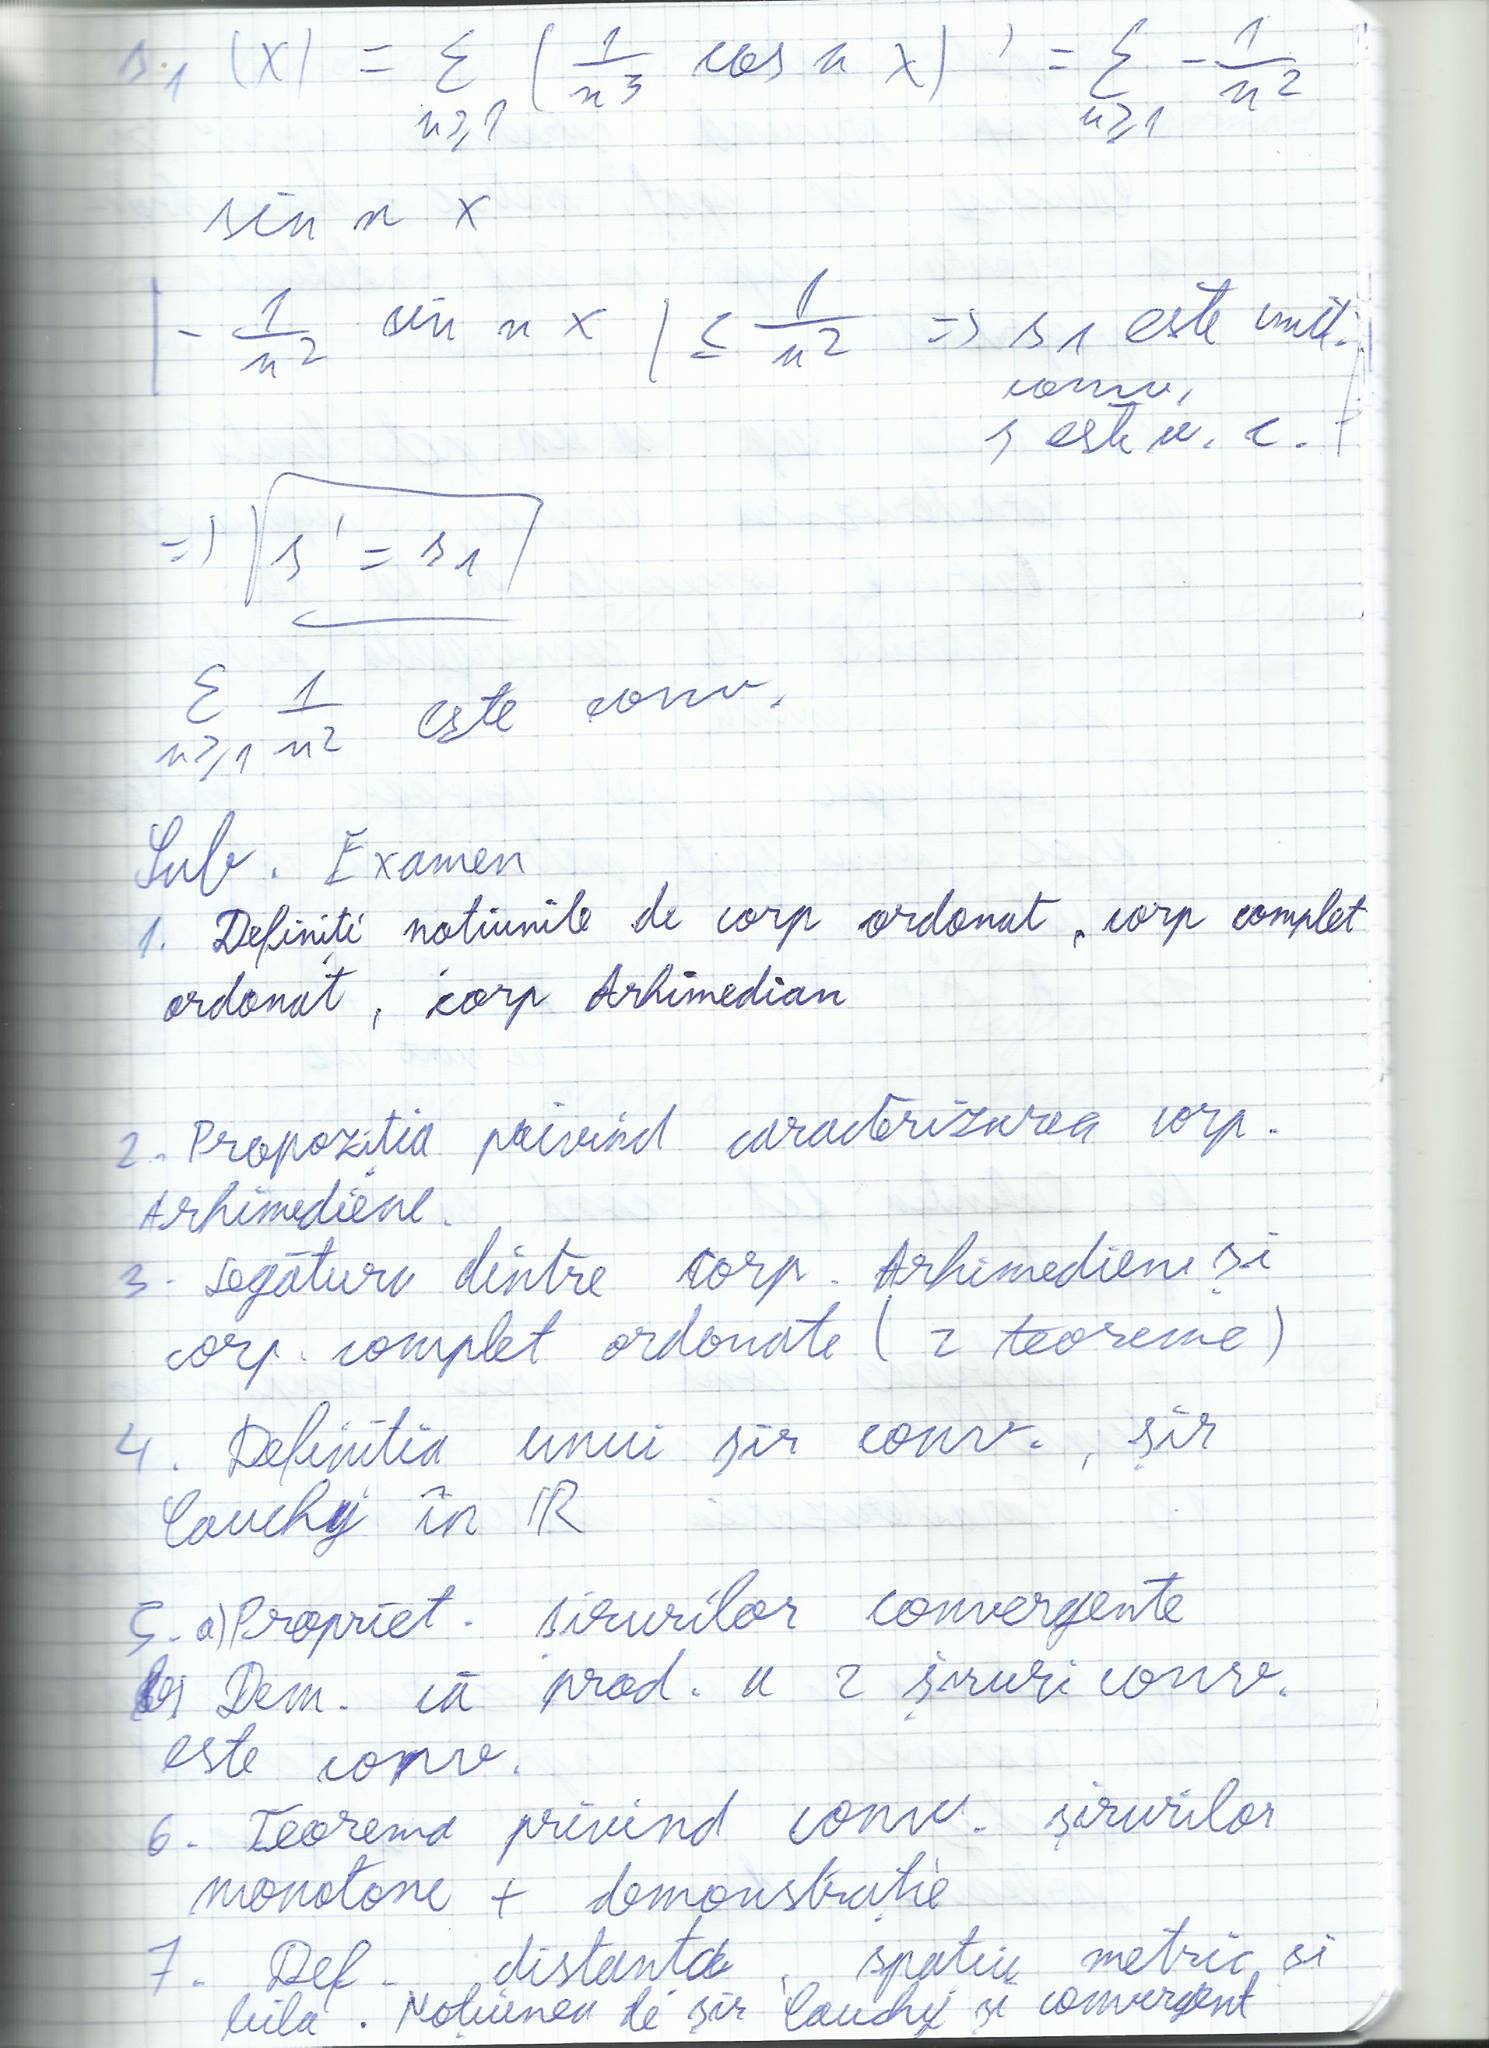 s₁(x) = Σ n≥1 (1/n³ cos n x)' = Σ n≥1 - 1/n²
sin n x
| - 1/n² sin n x | ≤ 1/n² => s₁ este unif.
conv.
s este u. c.
=> s' = s₁
Σ n≥1 1/n² este conv.
Sub. Examen
1. Definiți notiunile de corp ordonat, corp complet
ordonat, corp Arhimedian
2. Propoziția privind caracterizarea corp.
Arhimediene.
3. Legătura dintre corp. Arhimediene și
corp. complet ordonate (2 teoreme)
4. Definiția unui șir conv., șir
Cauchy în ℝ
5. a) Propriet. sirurilor convergente
b) Dem. că prod. a 2 șiruri conv.
este conv.
6. Teorema privind conv. șirurilor
monotone + demonstrație
7. Def. distanta, spatiu metric, si
bila. Noțiunea de șir Cauchy și convergent